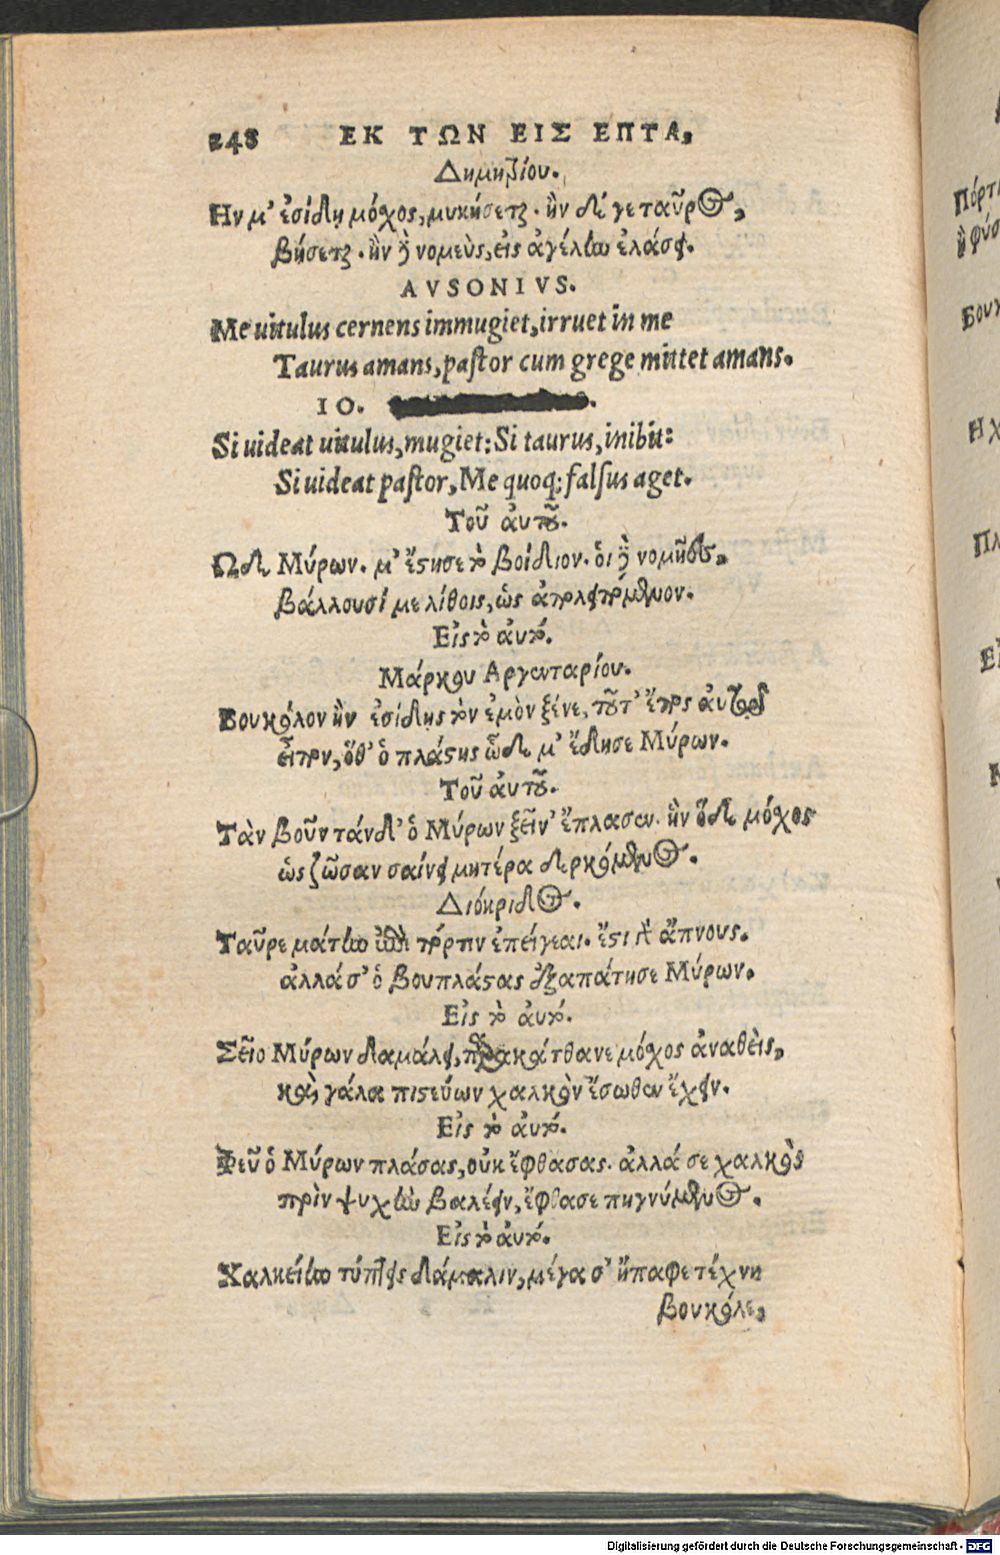 248 ΕΚ ΤΩΝ ΕΙΣ ΕΠΤΑ,
Δημητρίου.
Ην μ' ἐσίδῃ μόχος, μυκήσεται· ἢν δέ γε ταῦρος,
βήσεται· ἢν δὲ νομεὺς, εἰς ἀγέλην ἐλάσει.
AVSONIVS.
Me uitulus cernens immugiet, irruet in me
Taurus amans, pastor cum grege mittet amans.
IO.
Si uideat uitulus, mugiet: Si taurus, inibit:
Si uideat pastor, Me quoq; falsus aget.
Τοῦ ἀυτοῦ.
Ωδε Μύρων. μ' ἔστησε τὸ βοίδιον. ὁι δὲ νομῆες,
βάλλουσί με λίθοις, ὡς ἀπολειπόμενον.
Εἰς τὸ ἀυτό.
Μάρκου Αργενταρίου.
Βουκόλον ἢν ἐσίδῃς τὸν ἐμὸν ξένε, τοῦτ' ἔπος ἀυτῷ
εἶπον, ὅθ' ὁ πλάστης ὧδε μ' ἔδησε Μύρων.
Τοῦ ἀυτοῦ.
Τὰν βοῦν τάνδ' ὁ Μύρων ξεῖν' ἔπλασεν. ἣν ὅδε μόχος
ὡς ζῶσαν σαίνει μητέρα δερκόμενος.
Διόκριδος.
Ταῦρε μάτην ἐπὶ πόρτιν ἐπείγεαι. ἔστι γὰρ ἄπνους.
ἀλλά σ' ὁ βουπλάστας ἐξαπάτησε Μύρων.
Εἰς τὸ ἀυτό.
Σεῖο Μύρων δαμάλει, παρακάτθανε μόχος ἀναθὲις,
καὶ γάλα πιστεύων χαλκὸν ἔσωθεν ἔχειν.
Εἰς τὸ ἀυτό.
Φεῦ ὁ Μύρων πλάσας, οὐκ ἔφθασας. ἀλλά σε χαλκὸς
πρὶν ψυχὴν βαλέειν, ἔφθασε πηγνύμενος.
Εἰς τὸ ἀυτό.
Χαλκείην τύπτεις δάμαλιν, μέγα σ' ἤπαφε τέχνη
βουκόλε,
Πόρτι
ἢ φύσ
Βουκ
Η χ
Πλ
Digitalisierung gefördert durch die Deutsche Forschungsgemeinschaft - DFG